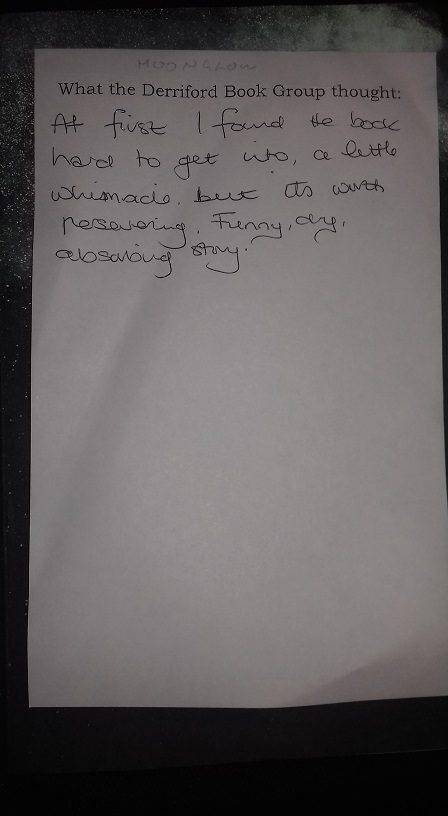 MOONGLOW
What the Derriford Book Group thought:
At first I found the book
hard to get into, a little
whimacie, but its worth
pesevering. Funny, dry,
absorbing story.